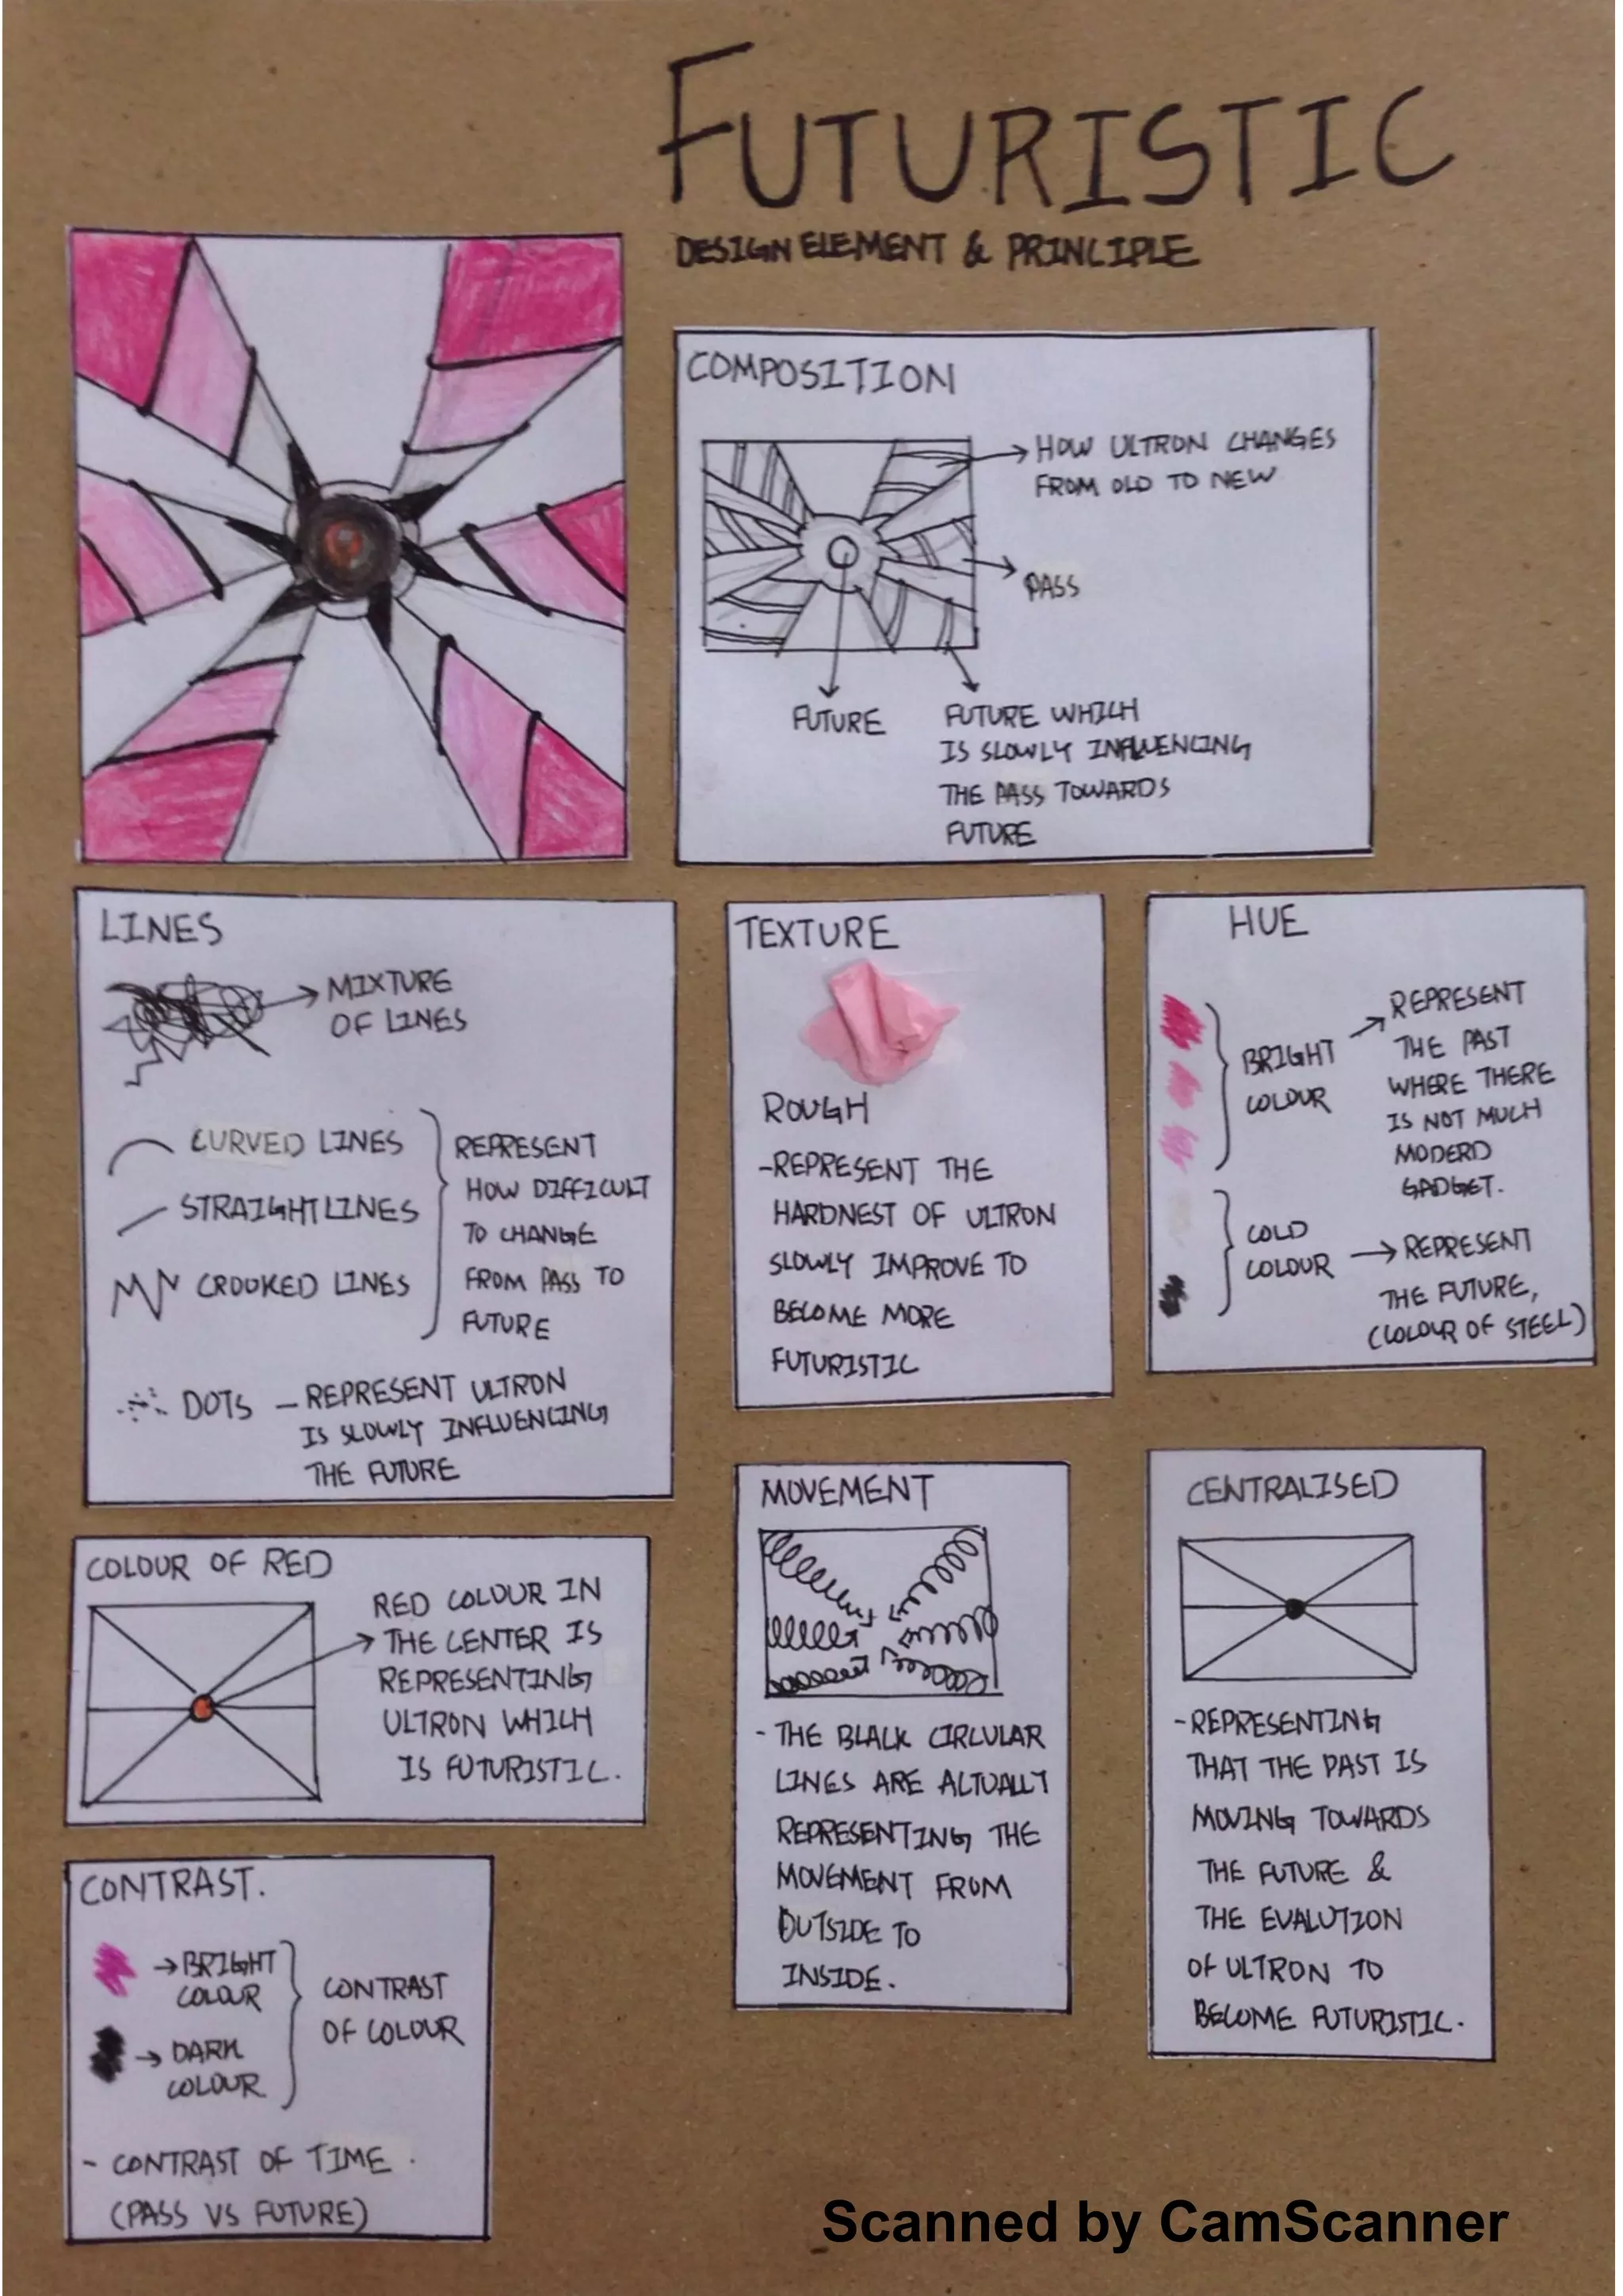 FUTURISTIC
DESIGN ELEMENT & PRINCIPLE
COMPOSITION
HOW ULTRON CHANGES
FROM OLD TO NEW
PASS
FUTURE
FUTURE WHICH
IS SLOWLY INFLUENCING
THE PASS TOWARDS
FUTURE
LINES
MIXTURE
OF LINES
CURVED LINES
STRAIGHT LINES
CROOKED LINES
REPRESENT
HOW DIFFICULT
TO CHANGE
FROM PASS TO
FUTURE
DOTS - REPRESENT ULTRON
IS SLOWLY INFLUENCING
THE FUTURE
TEXTURE
ROUGH
-REPRESENT THE
HARDNEST OF ULTRON
SLOWLY IMPROVE TO
BECOME MORE
FUTURISTIC
HUE
BRIGHT
COLOUR
REPRESENT
THE PAST
WHERE THERE
IS NOT MUCH
MODERD
GADGET.
COLD
COLOUR
REPRESENT
THE FUTURE,
(COLOUR OF STEEL)
COLOUR OF RED
RED COLOUR IN
THE CENTER IS
REPRESENTING
ULTRON WHICH
IS FUTURISTIC.
MOVEMENT
- THE BLACK CIRCULAR
LINES ARE ACTUALLY
REPRESENTING THE
MOVEMENT FROM
OUTSIDE TO
INSIDE.
CENTRALISED
-REPRESENTING
THAT THE PAST IS
MOVING TOWARDS
THE FUTURE &
THE EVALUTION
OF ULTRON TO
BECOME FUTURISTIC.
CONTRAST.
BRIGHT
COLOUR
DARK
COLOUR
CONTRAST
OF COLOUR
- CONTRAST OF TIME.
(PASS VS FUTURE)
Scanned by CamScanner